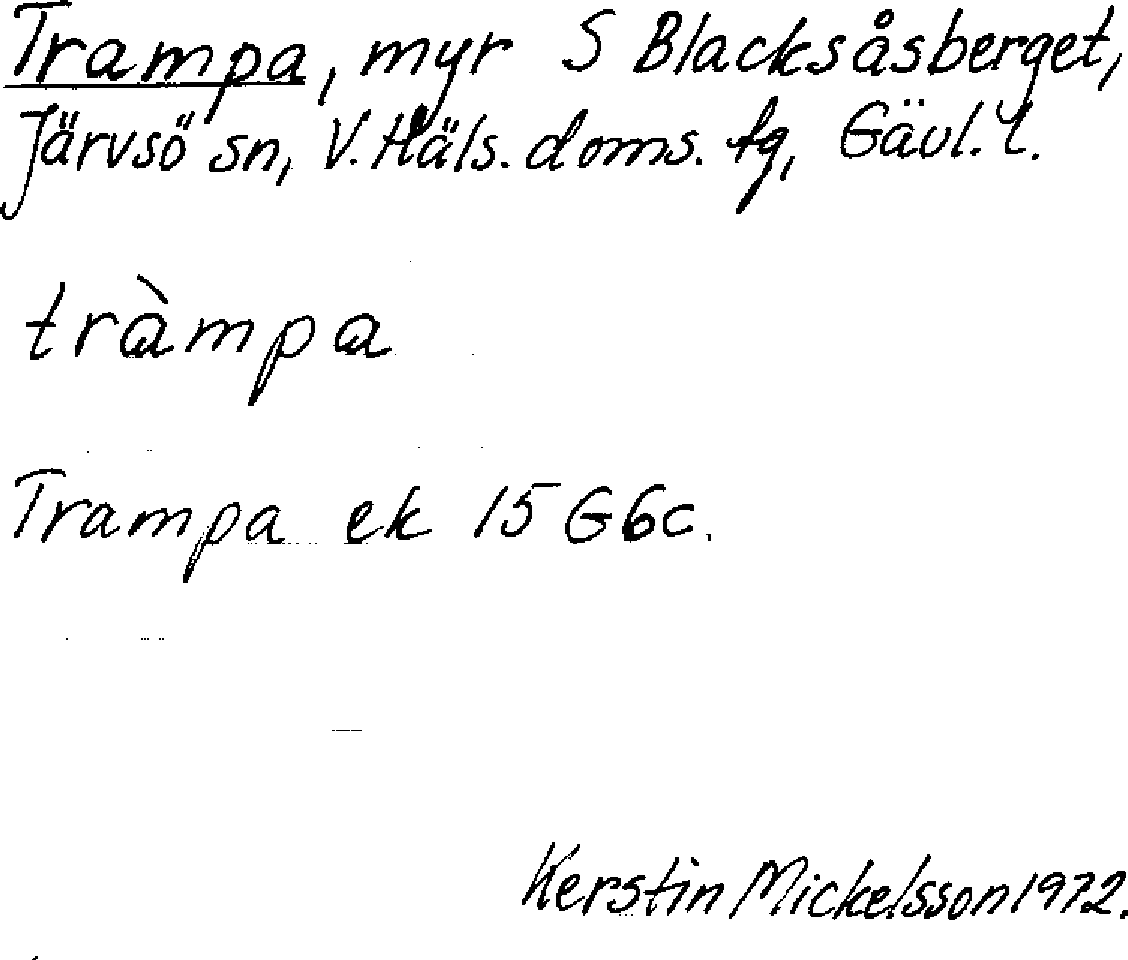 Trampa, myr S Blacksåsberget,
Järvsö sn, V. Häls. doms. tg, Gävl. l.
tràmpa
Trampa ek 15 G6c.
Kerstin Mickelsson 1972.